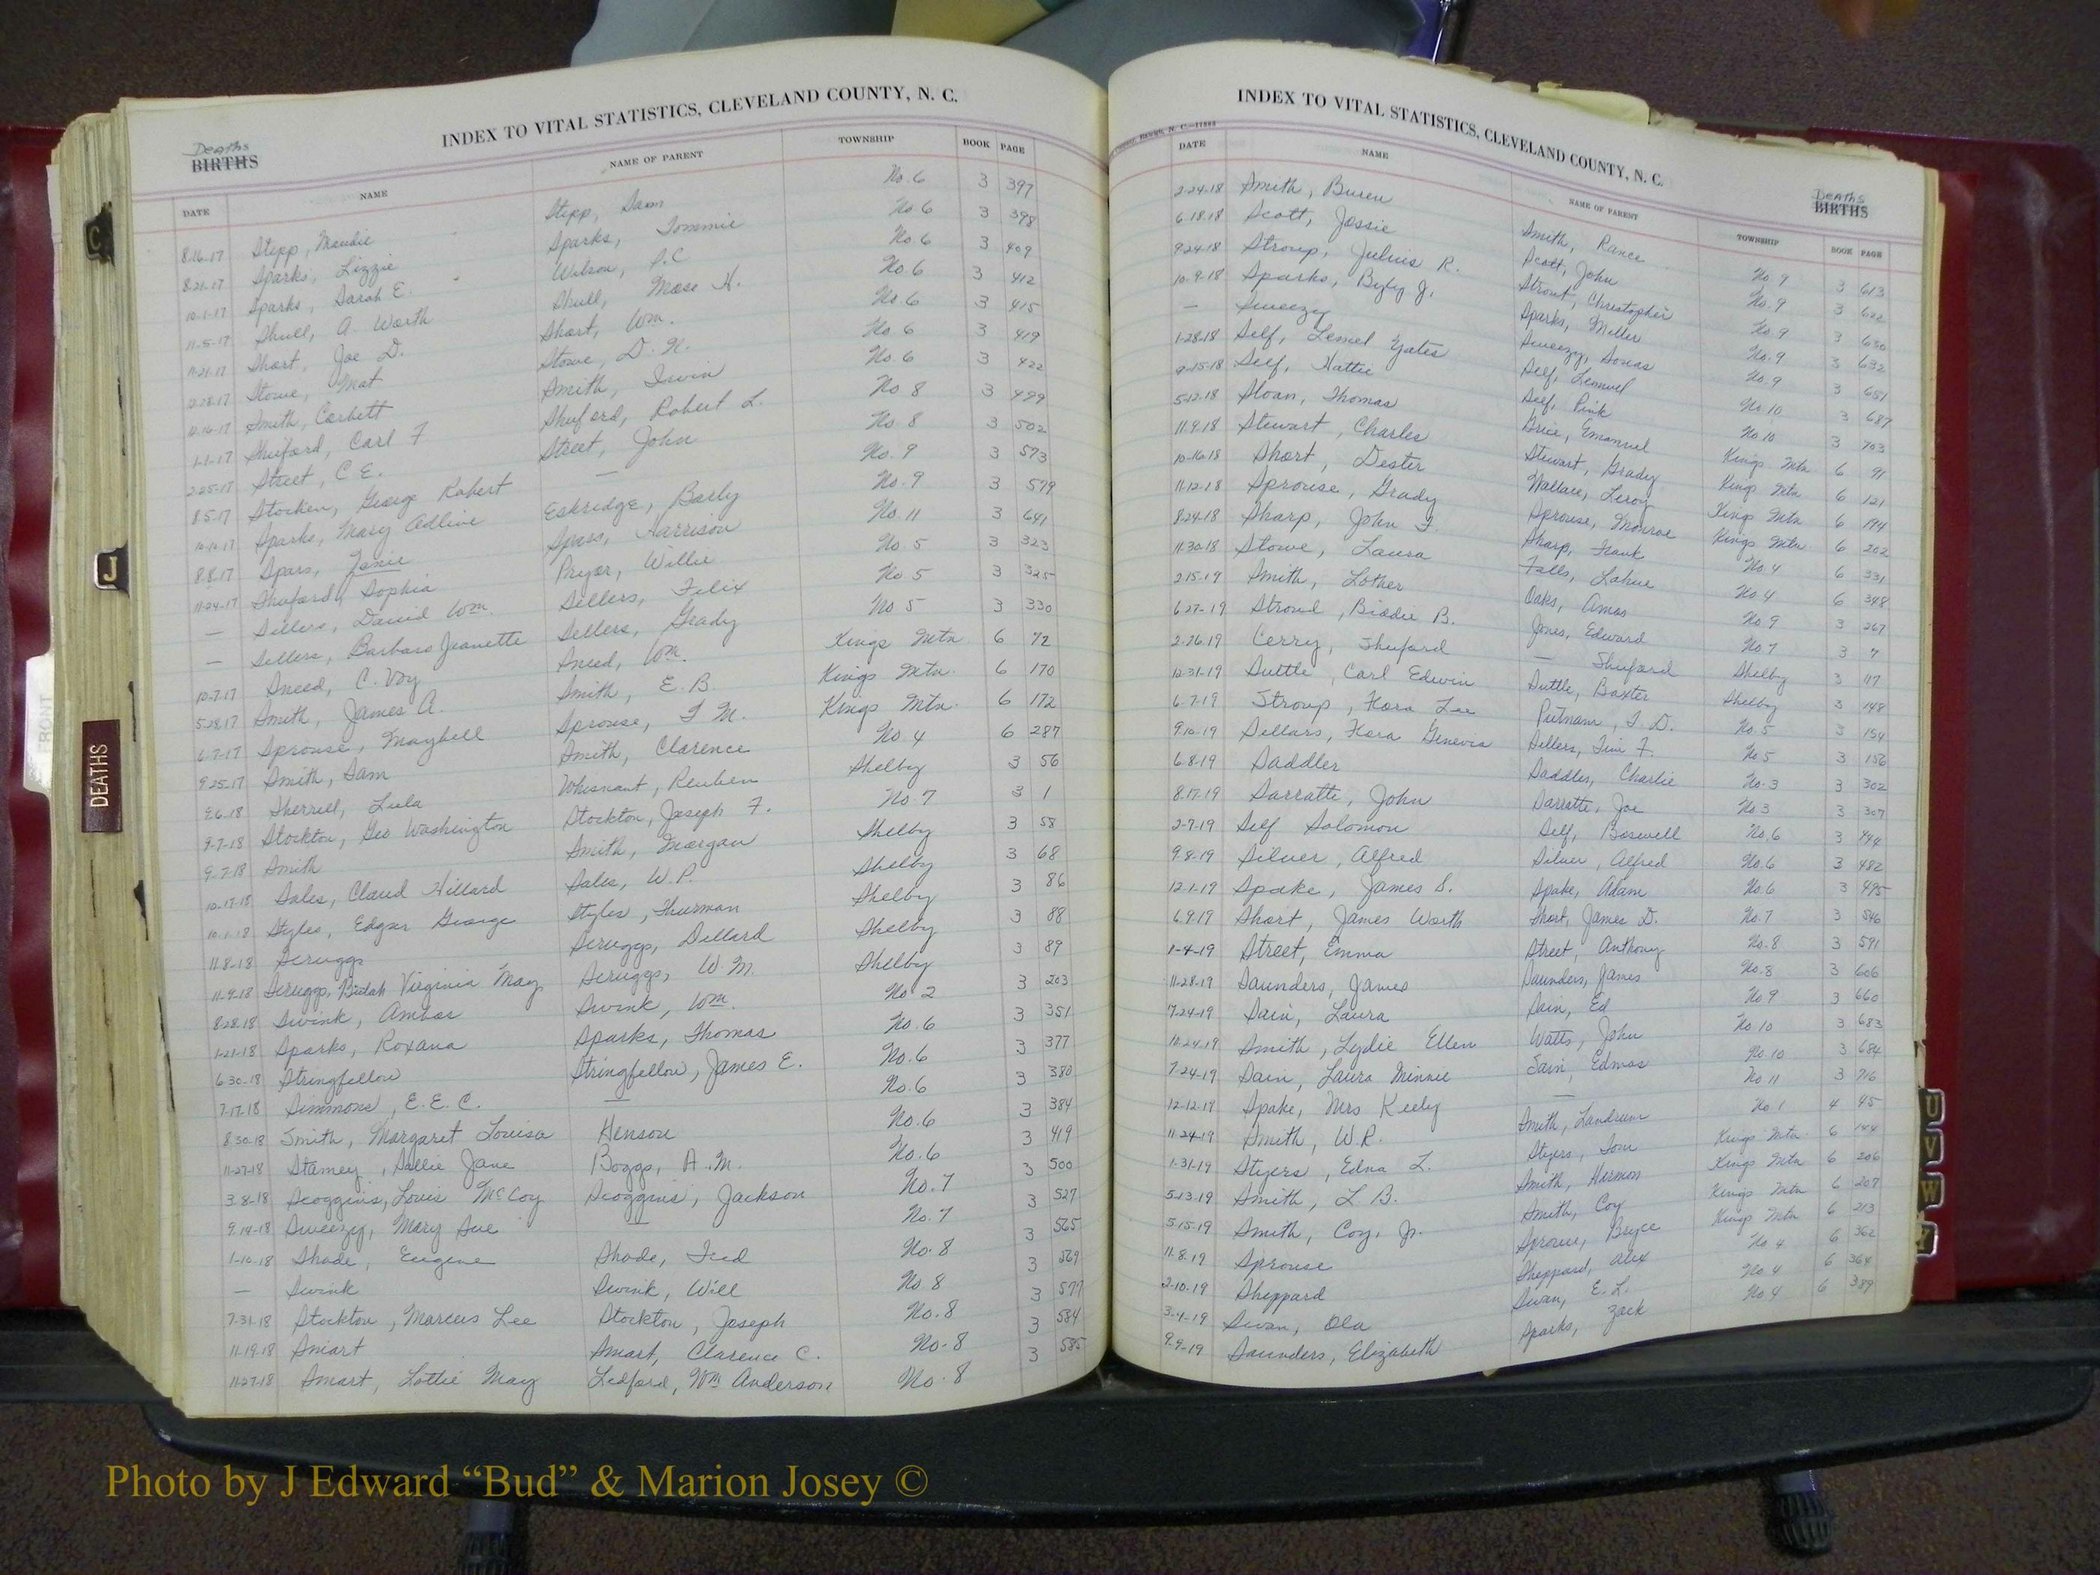 Deaths
BIRTHS
INDEX TO VITAL STATISTICS, CLEVELAND COUNTY, N. C.
DATE NAME NAME OF PARENT TOWNSHIP BOOK PAGE
8-16-17 Stepp, Maudie Stepp, Dam No. 6 3 397
8-21-17 Sparks, Lizzie Sparks, Tommie No 6 3 398
10-1-17 Sparks, Sarah E. Wilson, P.C No. 6 3 409
11-5-17 Shull, A. Worth Shull, Mose H. No. 6 3 412
11-21-17 Short, Joe D. Short, Wm. No. 6 3 415
12-18-17 Stowe, Mat Stowe, D. N. No. 6 3 419
12-16-17 Smith, Corbett Smith, Irvin No. 6 3 422
1-1-17 Shuford, Carl F Shuford, Robert L. No 8 3 499
2-25-17 Street, C E. Street, John No. 8 3 502
8-5-17 Stocken, George Robert — No. 9 3 573
10-10-17 Sparks, Mary Adline Eskridge, Barly No. 9 3 579
8-8-17 Spars, Janie Spars, Harrison No. 11 3 641
11-24-17 Shuford, Sophia Pryor, Willie No 5 3 323
— Sellers, David Wm. Sellers, Felix No 5 3 325
— Sellers, Barbara Jeanette Sellers, Grady No 5 3 330
10-7-17 Sneed, C. Voy Sneed, Wm. Kings Mtn. 6 72
5-28-17 Smith, James A. Smith, E. B. Kings Mtn. 6 170
6-7-17 Sprouse, Maybell Sprouse, T M. Kings Mtn. 6 172
9-25-17 Smith, Sam Smith, Clarence No. 4 6 287
9-6-18 Sherrill, Lula Whisnant, Reuben Shelby 3 56
9-7-18 Stockton, Geo Washington Stockton, Joseph F. No. 7 3 1
9-7-18 Smith Smith, Morgan Shelby 3 58
10-17-18 Sales, Claud Hillard Sales, W. P. Shelby 3 68
10-1-18 Styles, Edgar George Styles, Thurman Shelby 3 86
11-8-18 Scruggs Scruggs, Dillard Shelby 3 88
11-9-18 Scruggs, Bulah Virginia May Scruggs, W. M. Shelby 3 89
8-28-18 Swink, Ambos Swink, Wm. No. 2 3 203
1-21-18 Sparks, Roxana Sparks, Thomas No. 6 3 351
6-30-18 Stringfellow Stringfellow, James E. No. 6 3 377
7-17-18 Simmons, E. E. C. — No. 6 3 380
8-30-18 Smith, Margaret Louisa Henson No. 6 3 384
11-27-18 Stamey, Sallie Jane Boggs, A. M. No. 6 3 419
3-8-18 Scoggins, Louis McCoy Scoggins, Jackson No. 7 3 500
9-14-18 Sweezy, Mary Sue — No. 7 3 527
1-10-18 Shade, Eugene Shade, Fred No. 8 3 565
— Swink Swink, Will No. 8 3 569
7-31-18 Stockton, Marcus Lee Stockton, Joseph No. 8 3 577
11-19-18 Smart Smart, Clarence C. No. 8 3 584
11-27-18 Smart, Lottie May Ledford, Wm Anderson No. 8 3 585
INDEX TO VITAL STATISTICS, CLEVELAND COUNTY, N. C.
Deaths
BIRTHS
DATE NAME NAME OF PARENT TOWNSHIP BOOK PAGE
2-24-18 Smith, Buren Smith, Rance No. 9 3 613
6-18-18 Scott, Jossie Scott, John No. 9 3 622
9-24-18 Stroup, Julius R. Strout, Christopher No. 9 3 630
10-9-18 Sparks, Bizly J. Sparks, Miller No. 9 3 632
— Sweezy Sweezy, Dovas No. 9 3 651
1-28-18 Self, Lemuel Yates Self, Lemuel No. 10 3 687
9-15-18 Self, Hattie Self, Pink No 10 3 703
5-12-18 Sloan, Thomas Brice, Emanuel Kings Mtn 6 91
11-9-18 Stewart, Charles Stewart, Grady Kings Mtn 6 121
10-16-18 Short, Dester Wallace, Leroy Kings Mtn 6 194
11-12-18 Sprouse, Grady Sprouse, Monroe Kings Mtn. 6 202
8-24-18 Sharp, John F. Sharp, Frank No. 4 6 331
11-30-18 Stowe, Laura Falls, Lahue No. 4 6 348
2-15-19 Smith, Lother Oaks, Amos No. 9 3 267
6-27-19 Stroud, Biddie B. Jones, Edward No. 7 3 7
2-26-19 Cerry, Shuford — Shuford Shelby 3 117
10-31-19 Suttle, Carl Edwin Suttle, Baxter Shelby 3 148
6-7-19 Stroup, Flora Lee Putnam, T. D. No. 5 3 154
9-10-19 Sellars, Flora Genevia Sellers, Tim F. No 5 3 156
6-8-19 Saddler Saddler, Charlie No. 3 3 302
8-17-19 Sarratte, John Sarratte, Joe No 3 3 307
2-7-19 Self Solomon Self, Boswell No. 6 3 444
9-8-19 Silver, Alfred Silver, Alfred No. 6 3 482
12-1-19 Spake, James S. Spake, Adam No. 6 3 495
6-9-19 Short, James Worth Short, James D. No. 7 3 546
1-4-19 Street, Emma Street, Anthony No. 8 3 591
11-28-19 Saunders, James Saunders, James No. 8 3 606
7-24-19 Sain, Laura Sain, Ed No 9 3 660
10-24-19 Smith, Lydie Ellen Watts, John No 10 3 683
7-24-19 Sain, Laura Minnie Sain, Edmos No. 10 3 684
12-12-19 Spake, Mrs Keely — No 11 3 716
11-24-19 Smith, W. R. Smith, Landrum No 1 4 45
1-31-19 Styers, Edna L. Styers, Tom Kings Mtn. 6 144
5-13-19 Smith, L. B. Smith, Harmon Kings Mtn 6 206
5-15-19 Smith, Coy, Jr. Smith, Coy Kings Mtn 6 207
11-8-19 Sprouse Sprouse, Bryce Kings Mtn 6 213
2-10-19 Sheppard Sheppard, Alex No. 4 6 362
3-4-19 Swan, Ola Swan, E. L. No 4 6 364
9-9-19 Saunders, Elizabeth Sparks, Zack No 4 6 389
C
J
DEATHS
FRONT
U
V
W
Y
Photo by J Edward “Bud” & Marion Josey ©